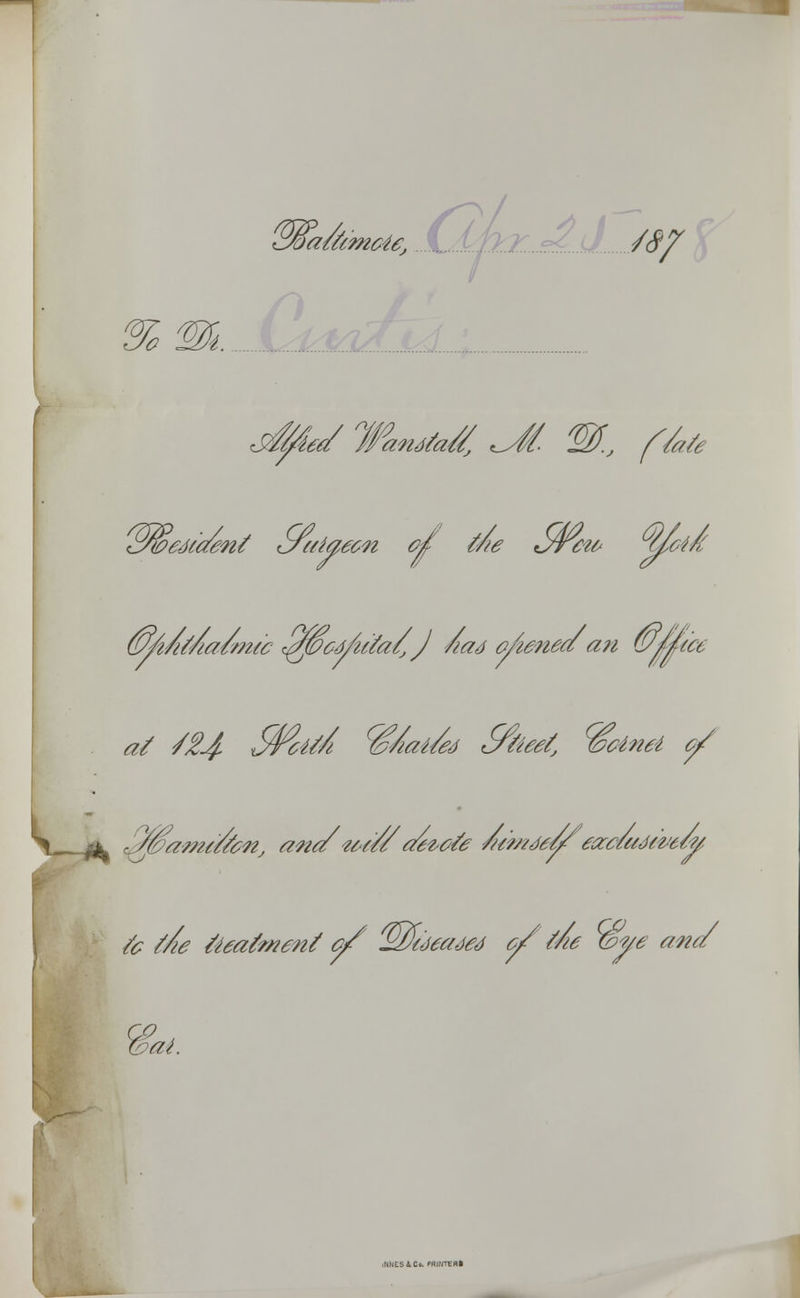 Baltimore, Apr 25 1878
To Dr. Curtis:
Alfred Wanstall, M. D., (late
Resident Surgeon of the New York
Ophthalmic Hospital,) has opened an Office
at 124 North Charles Street, Corner of
Hamilton, and will devote himself exclusively
to the treatment of Diseases of the Eye and
Ear.
INNES & Co. PRINTERS